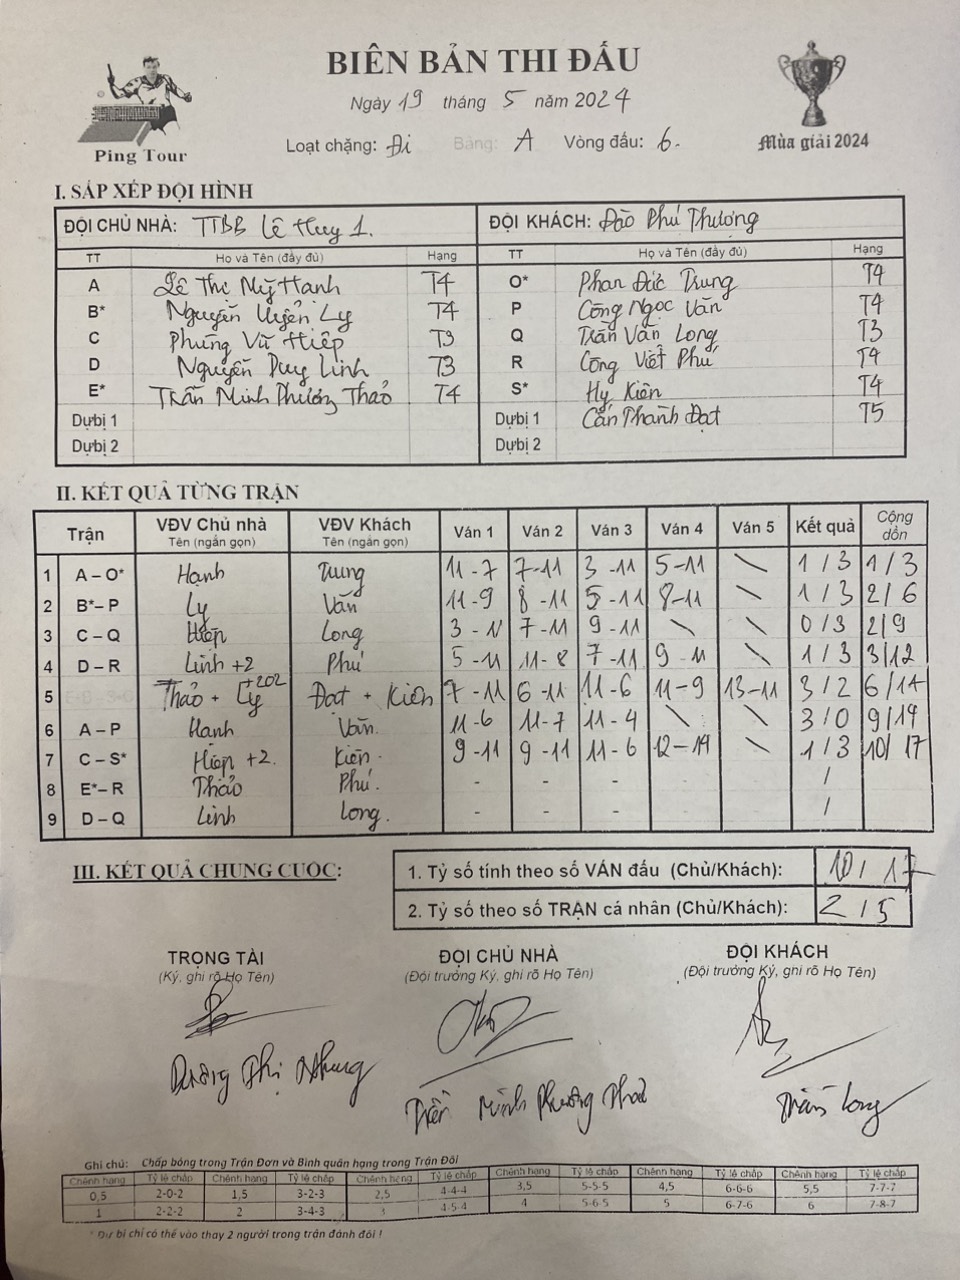 BIÊN BẢN THI ĐẤU
Ngày 19 tháng 5 năm 2024
Ping Tour
Loạt chặng: Đi Bảng: A Vòng đấu: 6.
Mùa giải 2024
I. SẮP XẾP ĐỘI HÌNH
ĐỘI CHỦ NHÀ: TTBB Lê Huy 1. ĐỘI KHÁCH: Đào Phú Thượng
TT Họ và Tên (đầy đủ) Hạng TT Họ và Tên (đầy đủ) Hạng
A Lê Thị Mỹ Hạnh T4 O* Phan Đức Trung T4
B* Nguyễn Uyển Ly T4 P Công Ngọc Văn T4
C Phùng Vũ Hiệp T3 Q Trần Văn Long T3
D Nguyễn Duy Linh T3 R Công Viết Phú T4
E* Trần Minh Phương Thảo T4 S* Hy Kiên T4
Dự bị 1 Dự bị 1 Cấn Thành Đạt T5
Dự bị 2 Dự bị 2
II. KẾT QUẢ TỪNG TRẬN
Trận VĐV Chủ nhà Tên (ngắn gọn) VĐV Khách Tên (ngắn gọn) Ván 1 Ván 2 Ván 3 Ván 4 Ván 5 Kết quả Cộng dồn
1 A – O* Hạnh Trung 11-7 7-11 3-11 5-11 \ 1/3 1/3
2 B*– P Ly Văn 11-9 8-11 5-11 8-11 \ 1/3 2/6
3 C – Q Hiệp Long 3-11 7-11 9-11 \ \ 0/3 2/9
4 D – R Linh +2 Phú 5-11 11-8 7-11 9-11 \ 1/3 3/12
5 Thảo + Ly +202 Đạt + Kiên 7-11 6-11 11-6 11-9 13-11 3/2 6/14
6 A – P Hạnh Văn. 11-6 11-7 11-4 \ \ 3/0 9/14
7 C – S* Hiệp +2. Kiên. 9-11 9-11 11-6 12-14 \ 1/3 10/17
8 E*– R Thảo Phú. - - - /
9 D – Q Linh Long. - - - /
III. KẾT QUẢ CHUNG CUỘC:
1. Tỷ số tính theo số VÁN đấu (Chủ/Khách): 10/17
2. Tỷ số theo số TRẬN cá nhân (Chủ/Khách): 2/5
TRỌNG TÀI ĐỘI CHỦ NHÀ ĐỘI KHÁCH
(Ký, ghi rõ Họ Tên) (Đội trưởng Ký, ghi rõ Họ Tên) (Đội trưởng Ký, ghi rõ Họ Tên)
Dương Thị Nhung
Trần Minh Phương Thảo
Trần Long
Ghi chú: Chấp bóng trong Trận Đơn và Bình quân hạng trong Trận Đôi
Chênh hạng Tỷ lệ chấp Chênh hạng Tỷ lệ chấp Chênh hạng Tỷ lệ chấp Chênh hạng Tỷ lệ chấp Chênh hạng Tỷ lệ chấp Chênh hạng Tỷ lệ chấp
0,5 2-0-2 1,5 3-2-3 2,5 4-4-4 3,5 5-5-5 4,5 6-6-6 5,5 7-7-7
1 2-2-2 2 3-4-3 3 4-5-4 4 5-6-5 5 6-7-6 6 7-8-7
* Dự bị chỉ có thể vào thay 2 người trong trận đánh đôi !